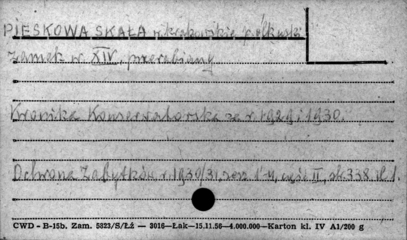 PIESKOWA SKAŁA w. krakowskie p. olkuski
zamek w. XIV, przerabiany
Kronika Konserwatorska za r. 1929 i 1930.
Ochrona Zabytków r. 1930/31, zesz. 1-4, część II, st. 338
CWD - B-15b. Zam. 5823/S/Łź — 3016—Łak—15.11.56—4.000.000—Karton kl. IV A1/200 g